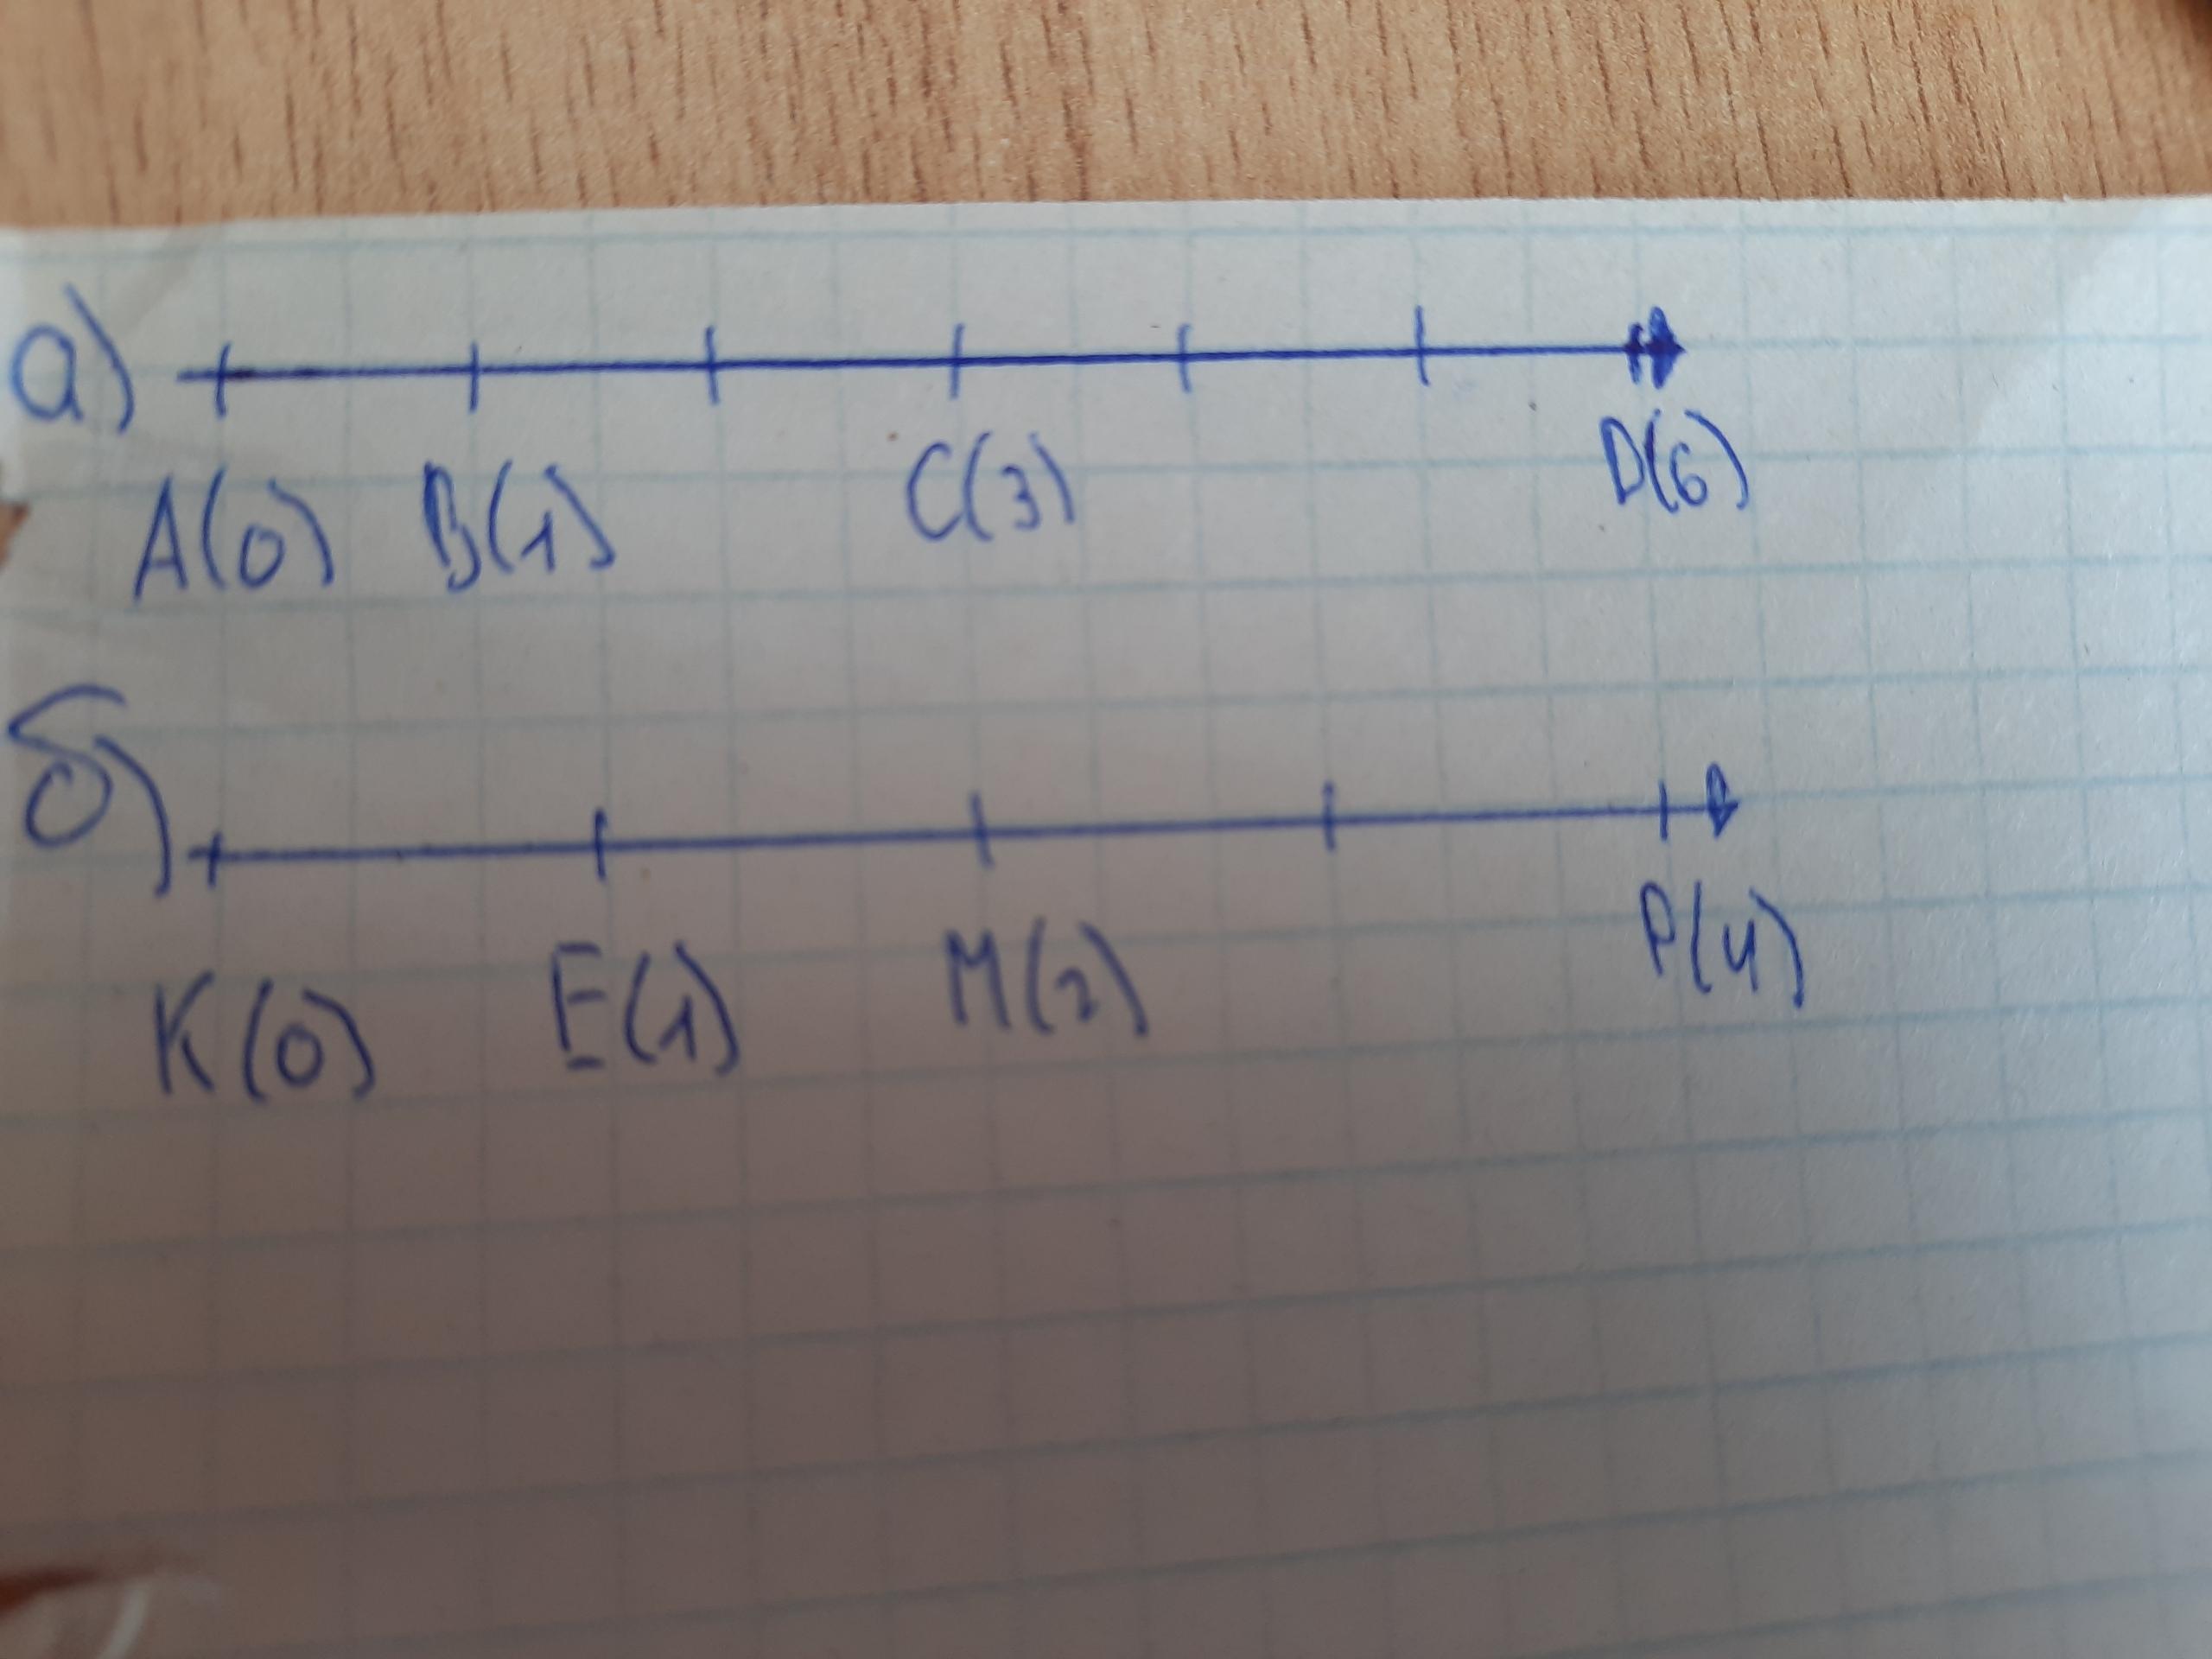 а)
A(0) B(1) C(3) D(6)
б)
K(0) E(1) M(2) P(4)